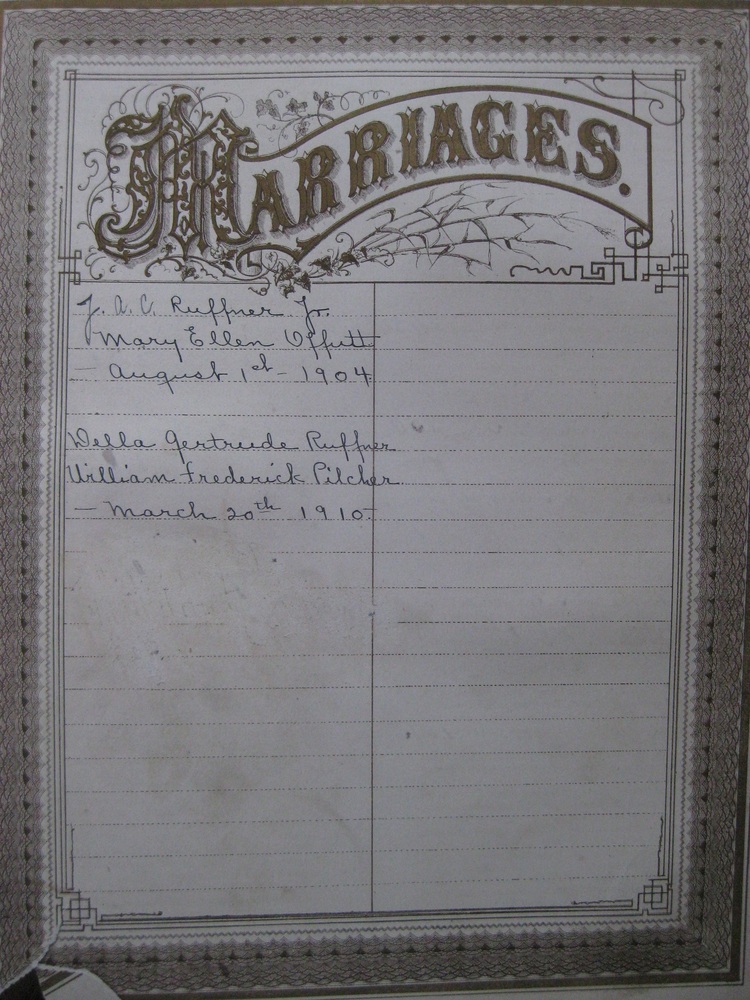 MARRIAGES.
J. A. C. Ruffner Jr.
Mary Ellen Offutt
— August 1st - 1904
Della Gertrude Ruffner
William Frederick Pilcher
— March 20th 1910-